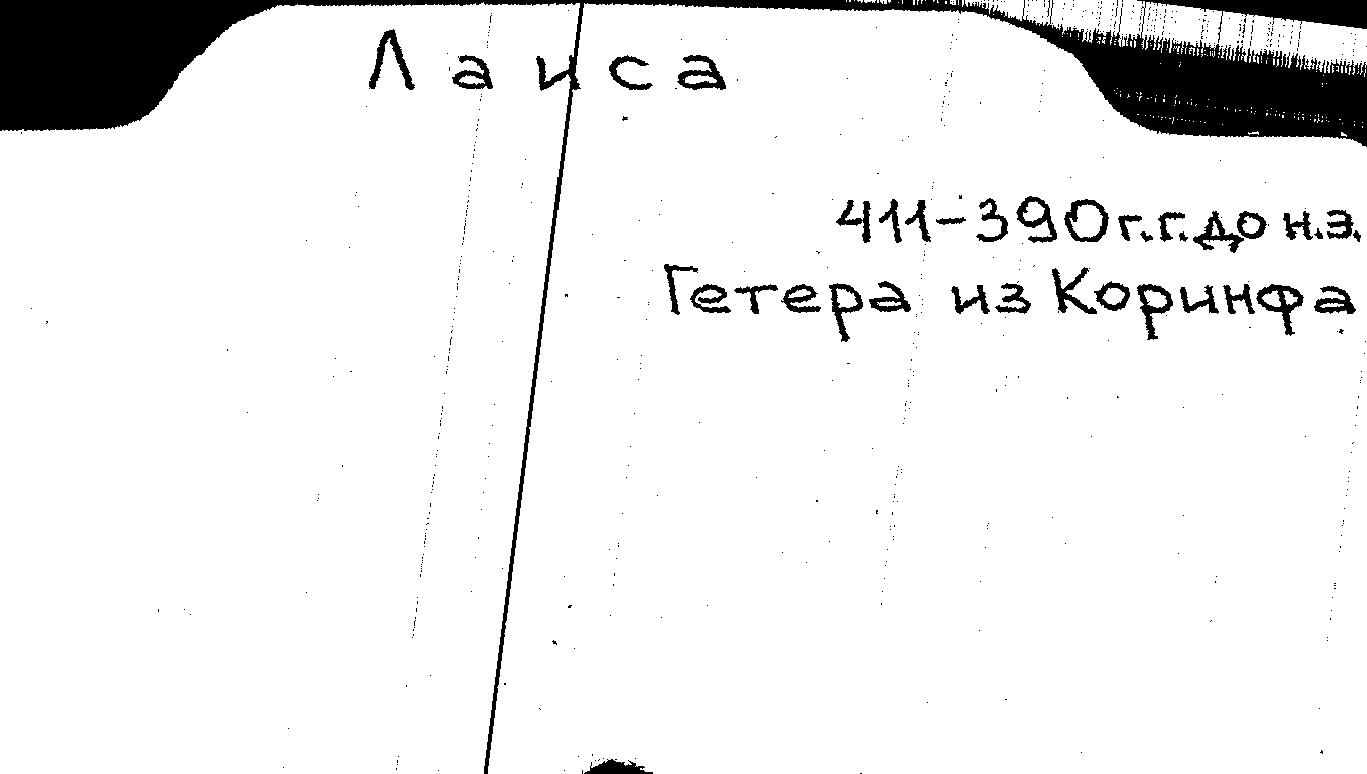 Лаиса
411-390 г.г. до н.э.
Гетера из Коринфа